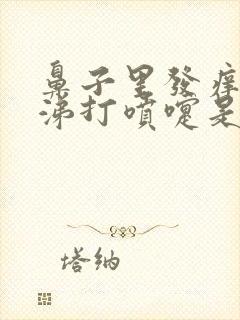 鼻子里發痒
涕打噴嚏是
塔納